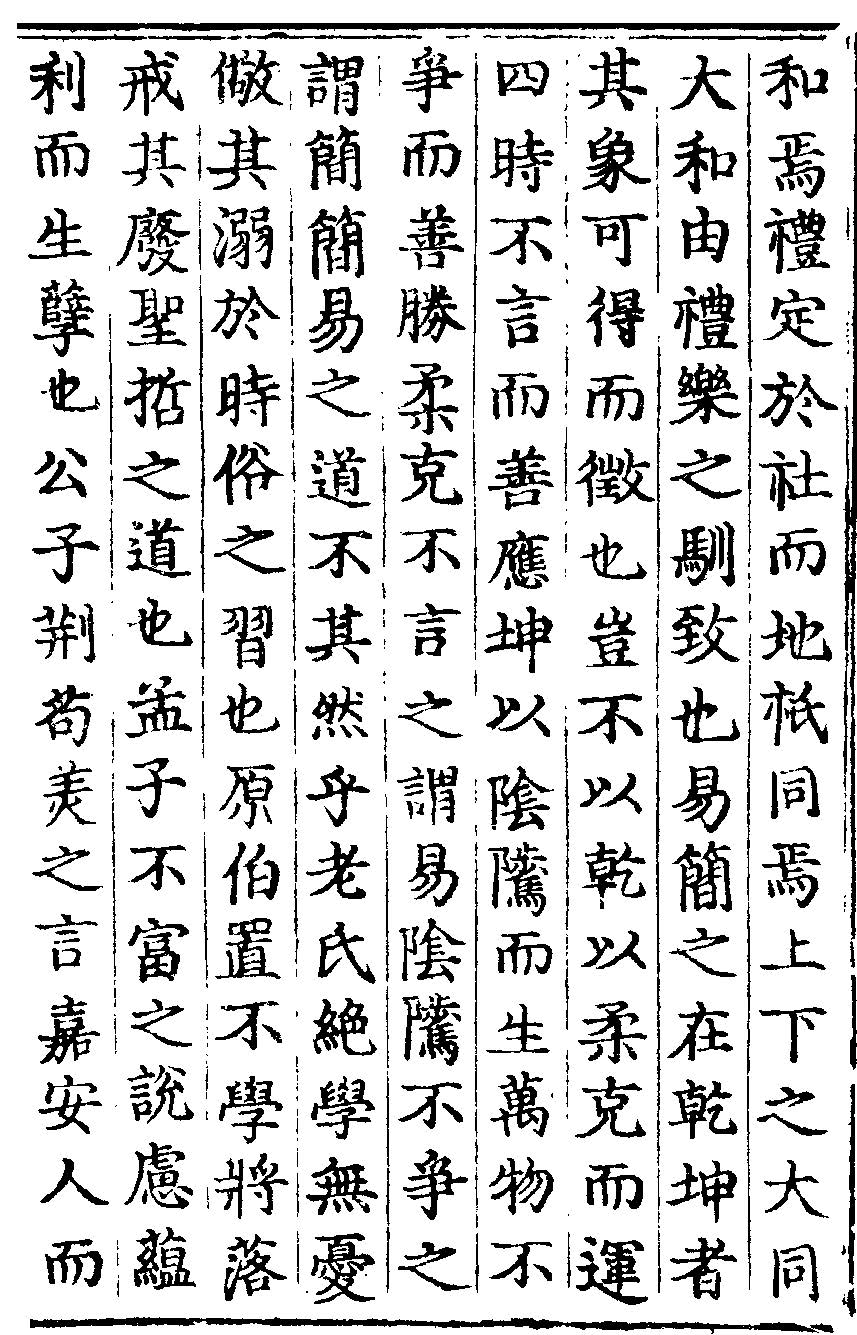 和焉禮定於社而地祇同焉上下之大同
大和由禮樂之馴致也易簡之在乾坤者
其象可得而徵也豈不以乾以柔克而運
四時不言而善應坤以陰隲而生萬物不
爭而善勝柔克不言之謂易陰隲不爭之
謂簡簡易之道不其然乎老氏絕學無憂
儆其溺於時俗之習也原伯置不學將落
戒其廢聖哲之道也孟子不富之說慮蘊
利而生孽也公子荆苟羙之言嘉安人而